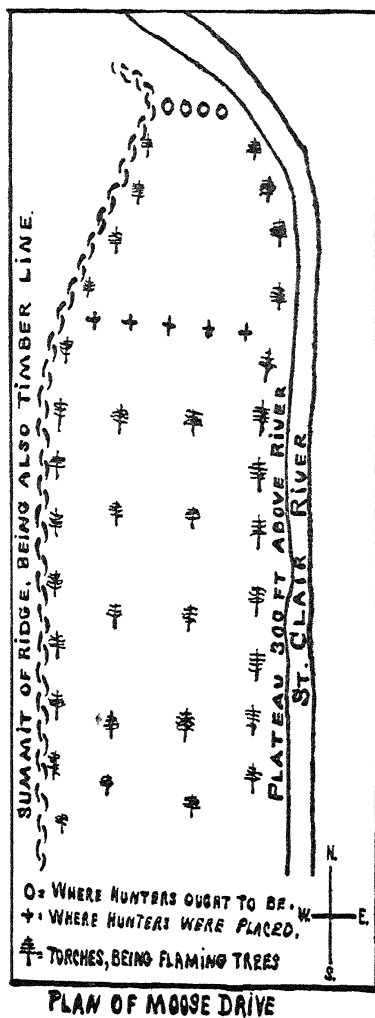 SUMMIT OF RIDGE, BEING ALSO TIMBER LINE.
PLATEAU 300 FT ABOVE RIVER
ST. CLAIR RIVER
N.
W. E.
S.
O = WHERE HUNTERS OUGHT TO BE.
+ = WHERE HUNTERS WERE PLACED.
= TORCHES, BEING FLAMING TREES
PLAN OF MOOSE DRIVE